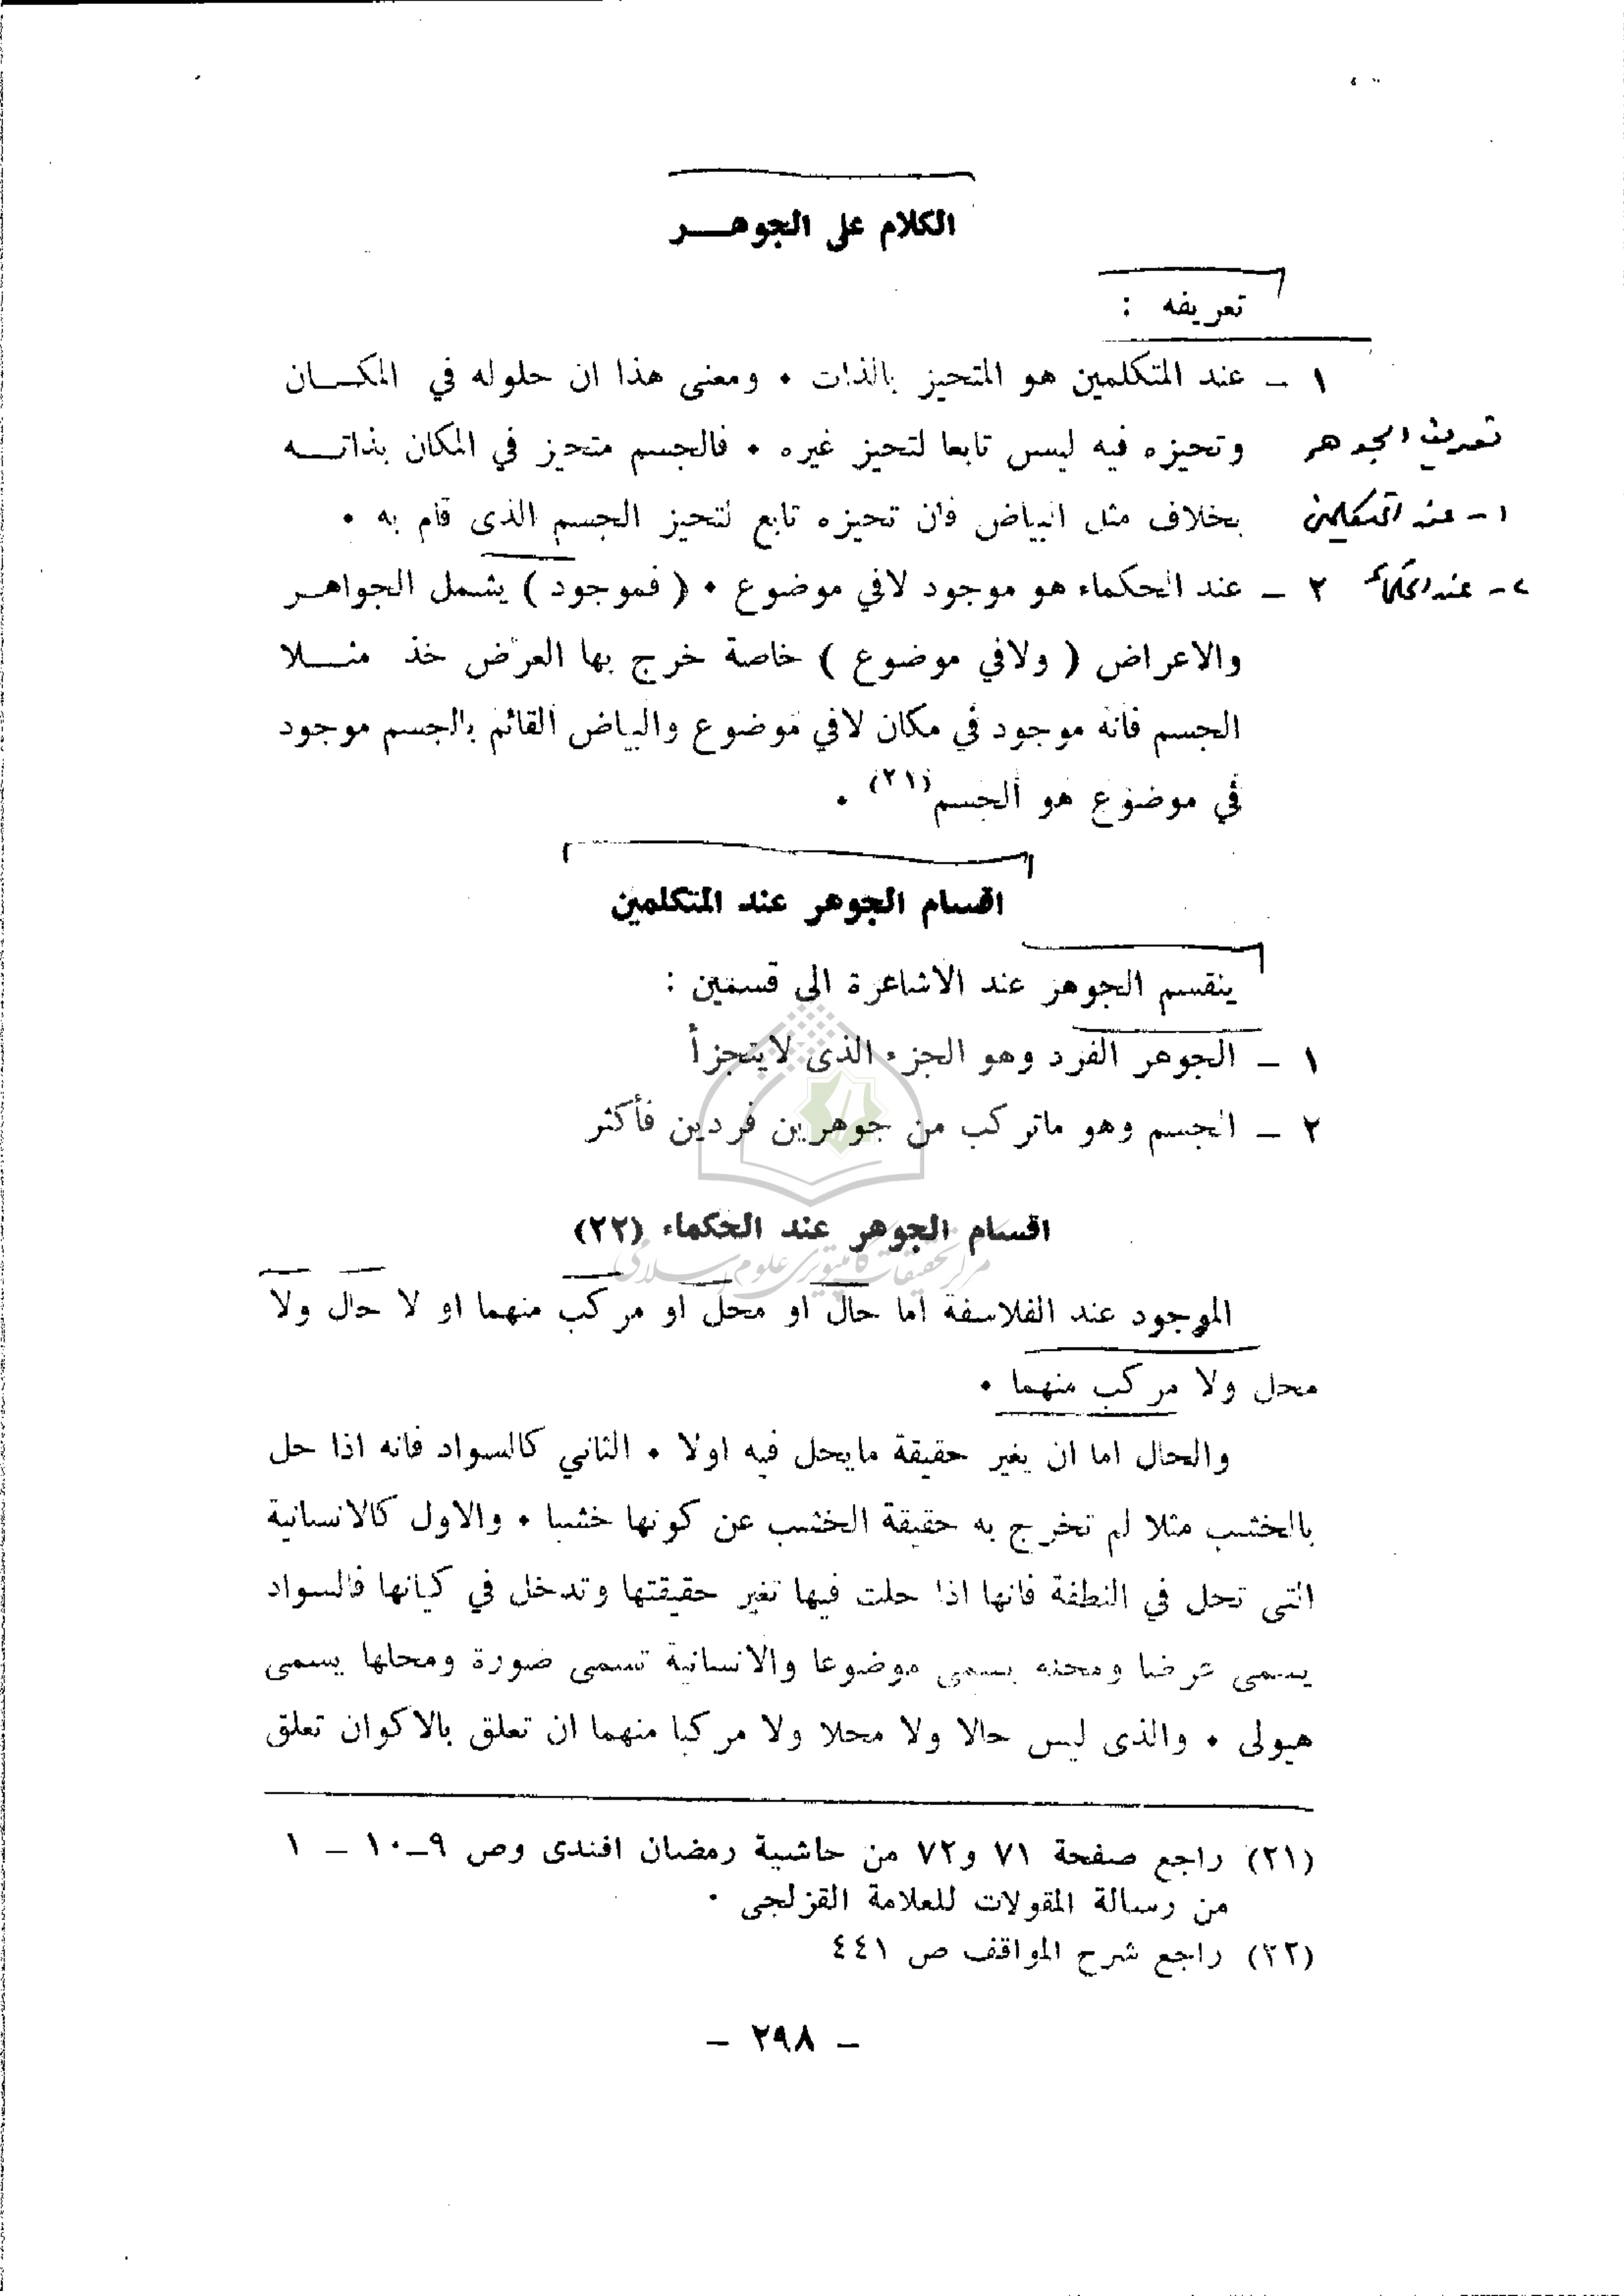 الكلام على الجوهـــر
تعريفه :
١ ـ عند المتكلمين هو المتحيز بالذات ٠ ومعنى هذا ان حلوله في المكـــان
تعريف الجوهر
وتحيزه فيه ليس تابعا لتحيز غيره ٠ فالجسم متحيز في المكان بذاتـــه
١ - عند المتكلمين
بخلاف مثل البياض فان تحيزه تابع لتحيز الجسم الذى قام به ٠
٢ - عند الحكماء
٢ ـ عند الحكماء هو موجود لافي موضوع ٠ ( فموجود ) يشمل الجواهـر
والاعراض ( ولافي موضوع ) خاصة خرج بها العرض خذ مثـــلا
الجسم فانه موجود في مكان لافي موضوع والبياض القائم بالجسم موجود
في موضوع هو الجسم(٢١) ٠
اقسام الجوهر عند المتكلمين
ينقسم الجوهر عند الاشاعرة الى قسمين :
١ ـ الجوهر الفرد وهو الجزء الذى لايتجزأ
٢ ـ الجسم وهو ماتركب من جوهرين فردين فأكثر
اقسام الجوهر عند الحكماء (٢٢)
مركز تحقيقات كامپيوتري علوم اسلامي
الموجود عند الفلاسفة اما حال او محل او مركب منهما او لا حال ولا
محل ولا مركب منهما ٠
والحال اما ان يغير حقيقة مايحل فيه اولا ٠ الثاني كالسواد فانه اذا حل
بالخشب مثلا لم تخرج به حقيقة الخشب عن كونها خشبا ٠ والاول كالانسانية
التى تحل في النطفة فانها اذا حلت فيها تغير حقيقتها وتدخل في كيانها فالسواد
يسمى عرضا ومحله يسمى موضوعا والانسانية تسمى صورة ومحلها يسمى
هيولى ٠ والذى ليس حالا ولا محلا ولا مركبا منهما ان تعلق بالاكوان تعلق
(٢١) راجع صفحة ٧١ و٧٢ من حاشية رمضان افندى وص ٩ـ١٠ ـ ١
من رسالة المقولات للعلامة القزلجى ٠
(٢٢) راجع شرح المواقف ص ٤٤١
ـ ٢٩٨ ـ